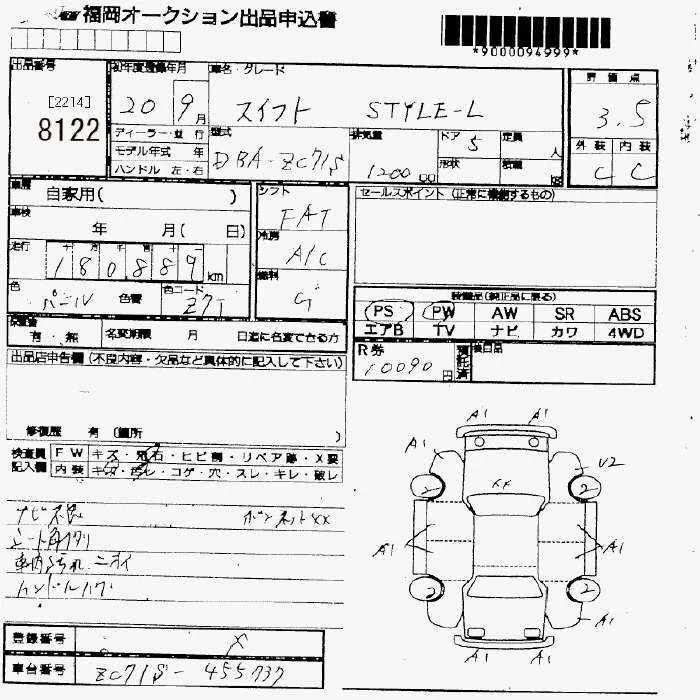 福岡オークション出品申込書
*9000094999*
出品番号 初年度登録年月 車名・グレード 評価点
[2214] 20 9月 スイフト STYLE-L 3.5
8122 ディーラー・並行 型式 排気量 ドア 5 定員 人
モデル年式 年 DBA-ZC71S 1200 CC 形状 積載 kg 外装 内装
ハンドル 左・右 C C
車歴 自家用( ) シフト FAT セールスポイント(正常に機能するもの)
車検 年 月( 日) 冷房 A/C
走行 十 万 千 百 十 一
180,889 km 燃料 G
色 パール 色替 色コード Z7T 装備品(純正品に限る)
PS PW AW SR ABS
エアB TV ナビ カワ 4WD
保証書 有・無 名変期限 月 日迄に名変できる方
R券 10090円 預託済 後日品
出品店申告欄(不良内容・欠品など具体的に記入して下さい)
修復歴 有 (箇所 )
検査員 FW キズ・飛石・ヒビ割・リペア跡・X要
記入欄 内装 キズ・汚レ・コゲ・穴・スレ・キレ・破レ
ナビ不良 ボンネットXX
シート角スリ
車内汚れ.ニオイ
ハンドルハゲ
A1 A1
A1 U2
XX
2 2
A1 A1
2 2
A1 A1
登録番号 X
車台番号 ZC71S-455737